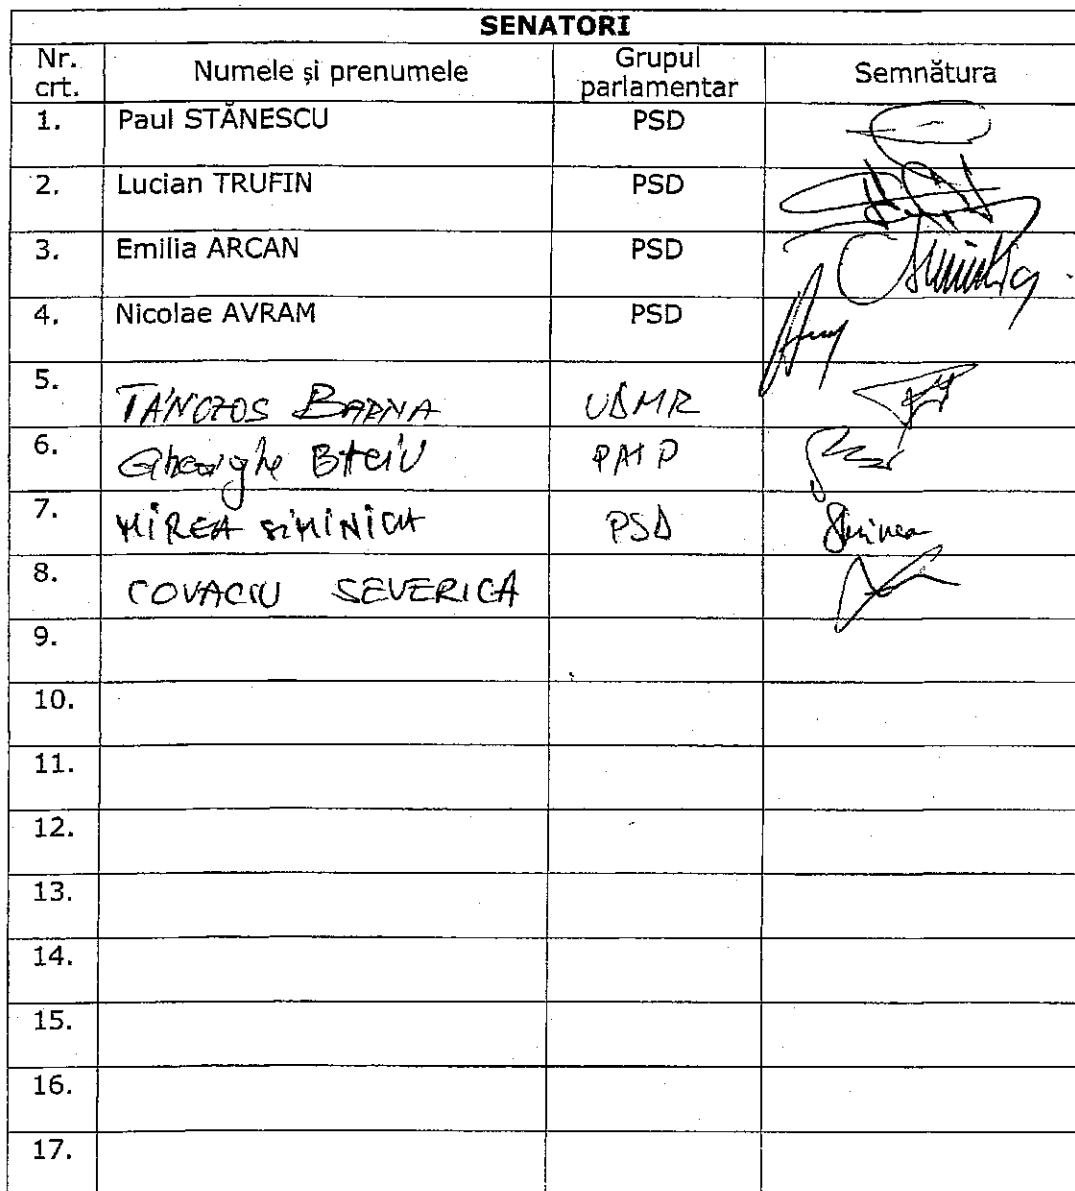 SENATORI
Nr. crt. Numele și prenumele Grupul parlamentar Semnătura
1. Paul STĂNESCU PSD
2. Lucian TRUFIN PSD
3. Emilia ARCAN PSD
4. Nicolae AVRAM PSD
5. TÁNCZOS BARNA UDMR
6. Gheorghe
7. MIREA SIMINICA PSD
8. COVACIU SEVERICA
9.
10.
11.
12.
13.
14.
15.
16.
17.